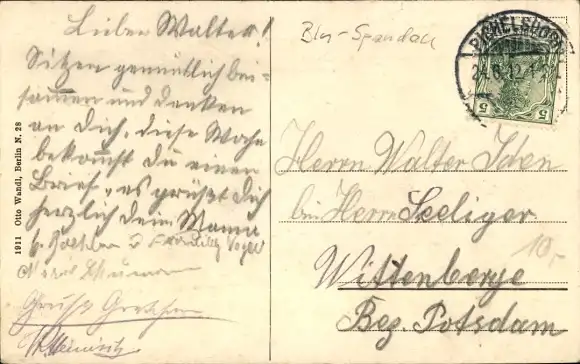 Lieber Walter!
Sitzen gemütlich bei-
sammen und denken
an Dich, diese Woche
bekommst du einen
Brief, es grüßt Dich
herzlich dein Mama
Familie Vogel
Gruß Gretchen
1911 Otto Wandl, Berlin N. 28
Bln-Spandau
PICHELSDORF
24.6.12.1
5 5
Herrn Walter Iden
bei Herrn Seeliger
10,-
Wittenberge
Bez. Potsdam